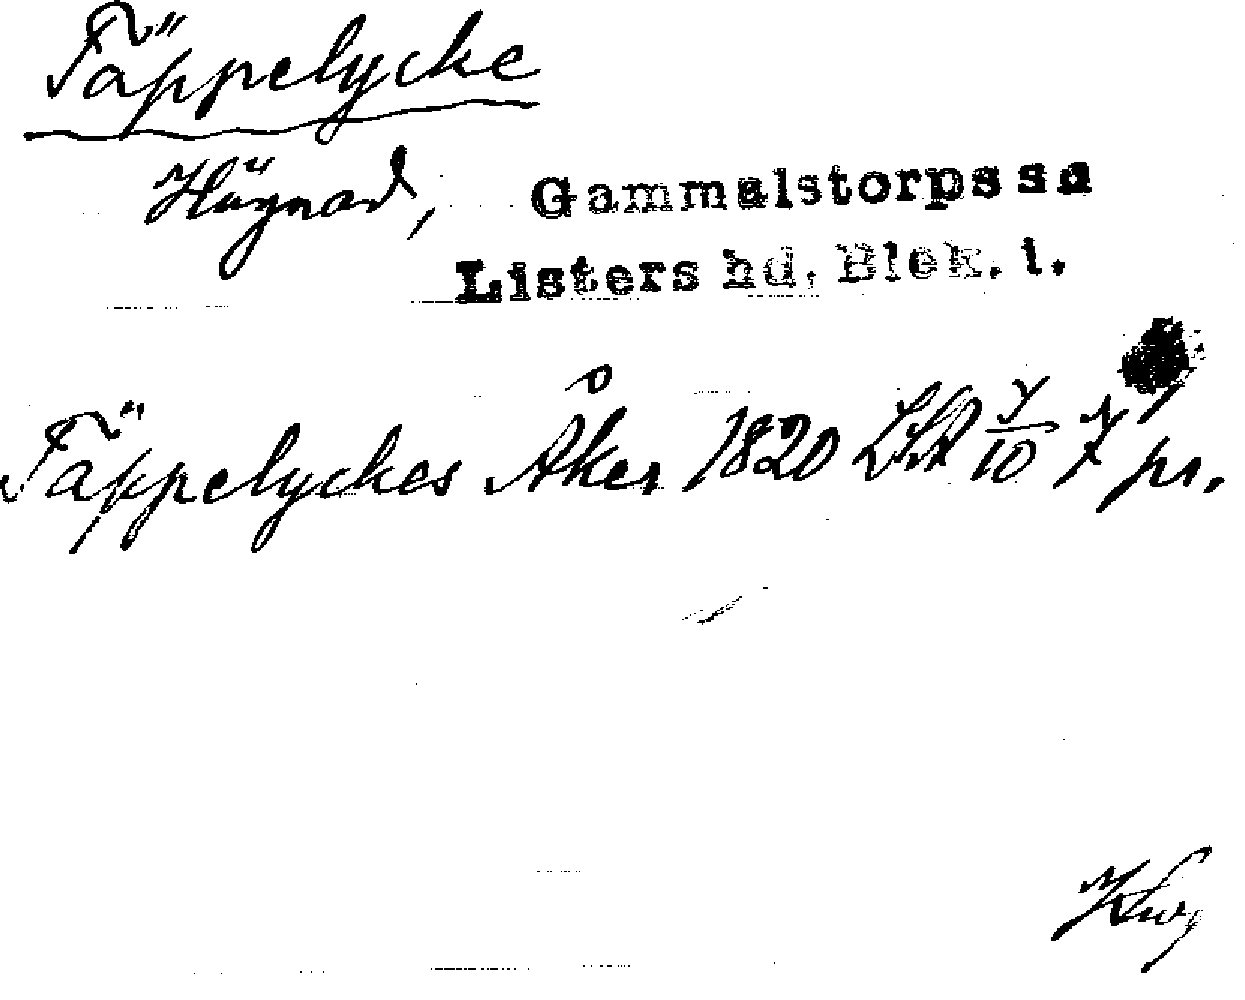 Täppelycke
Hägnad, Gammalstorps sn
Listers hd. Blek. l.
Täppelyckes Åker 1820 LSA pr.